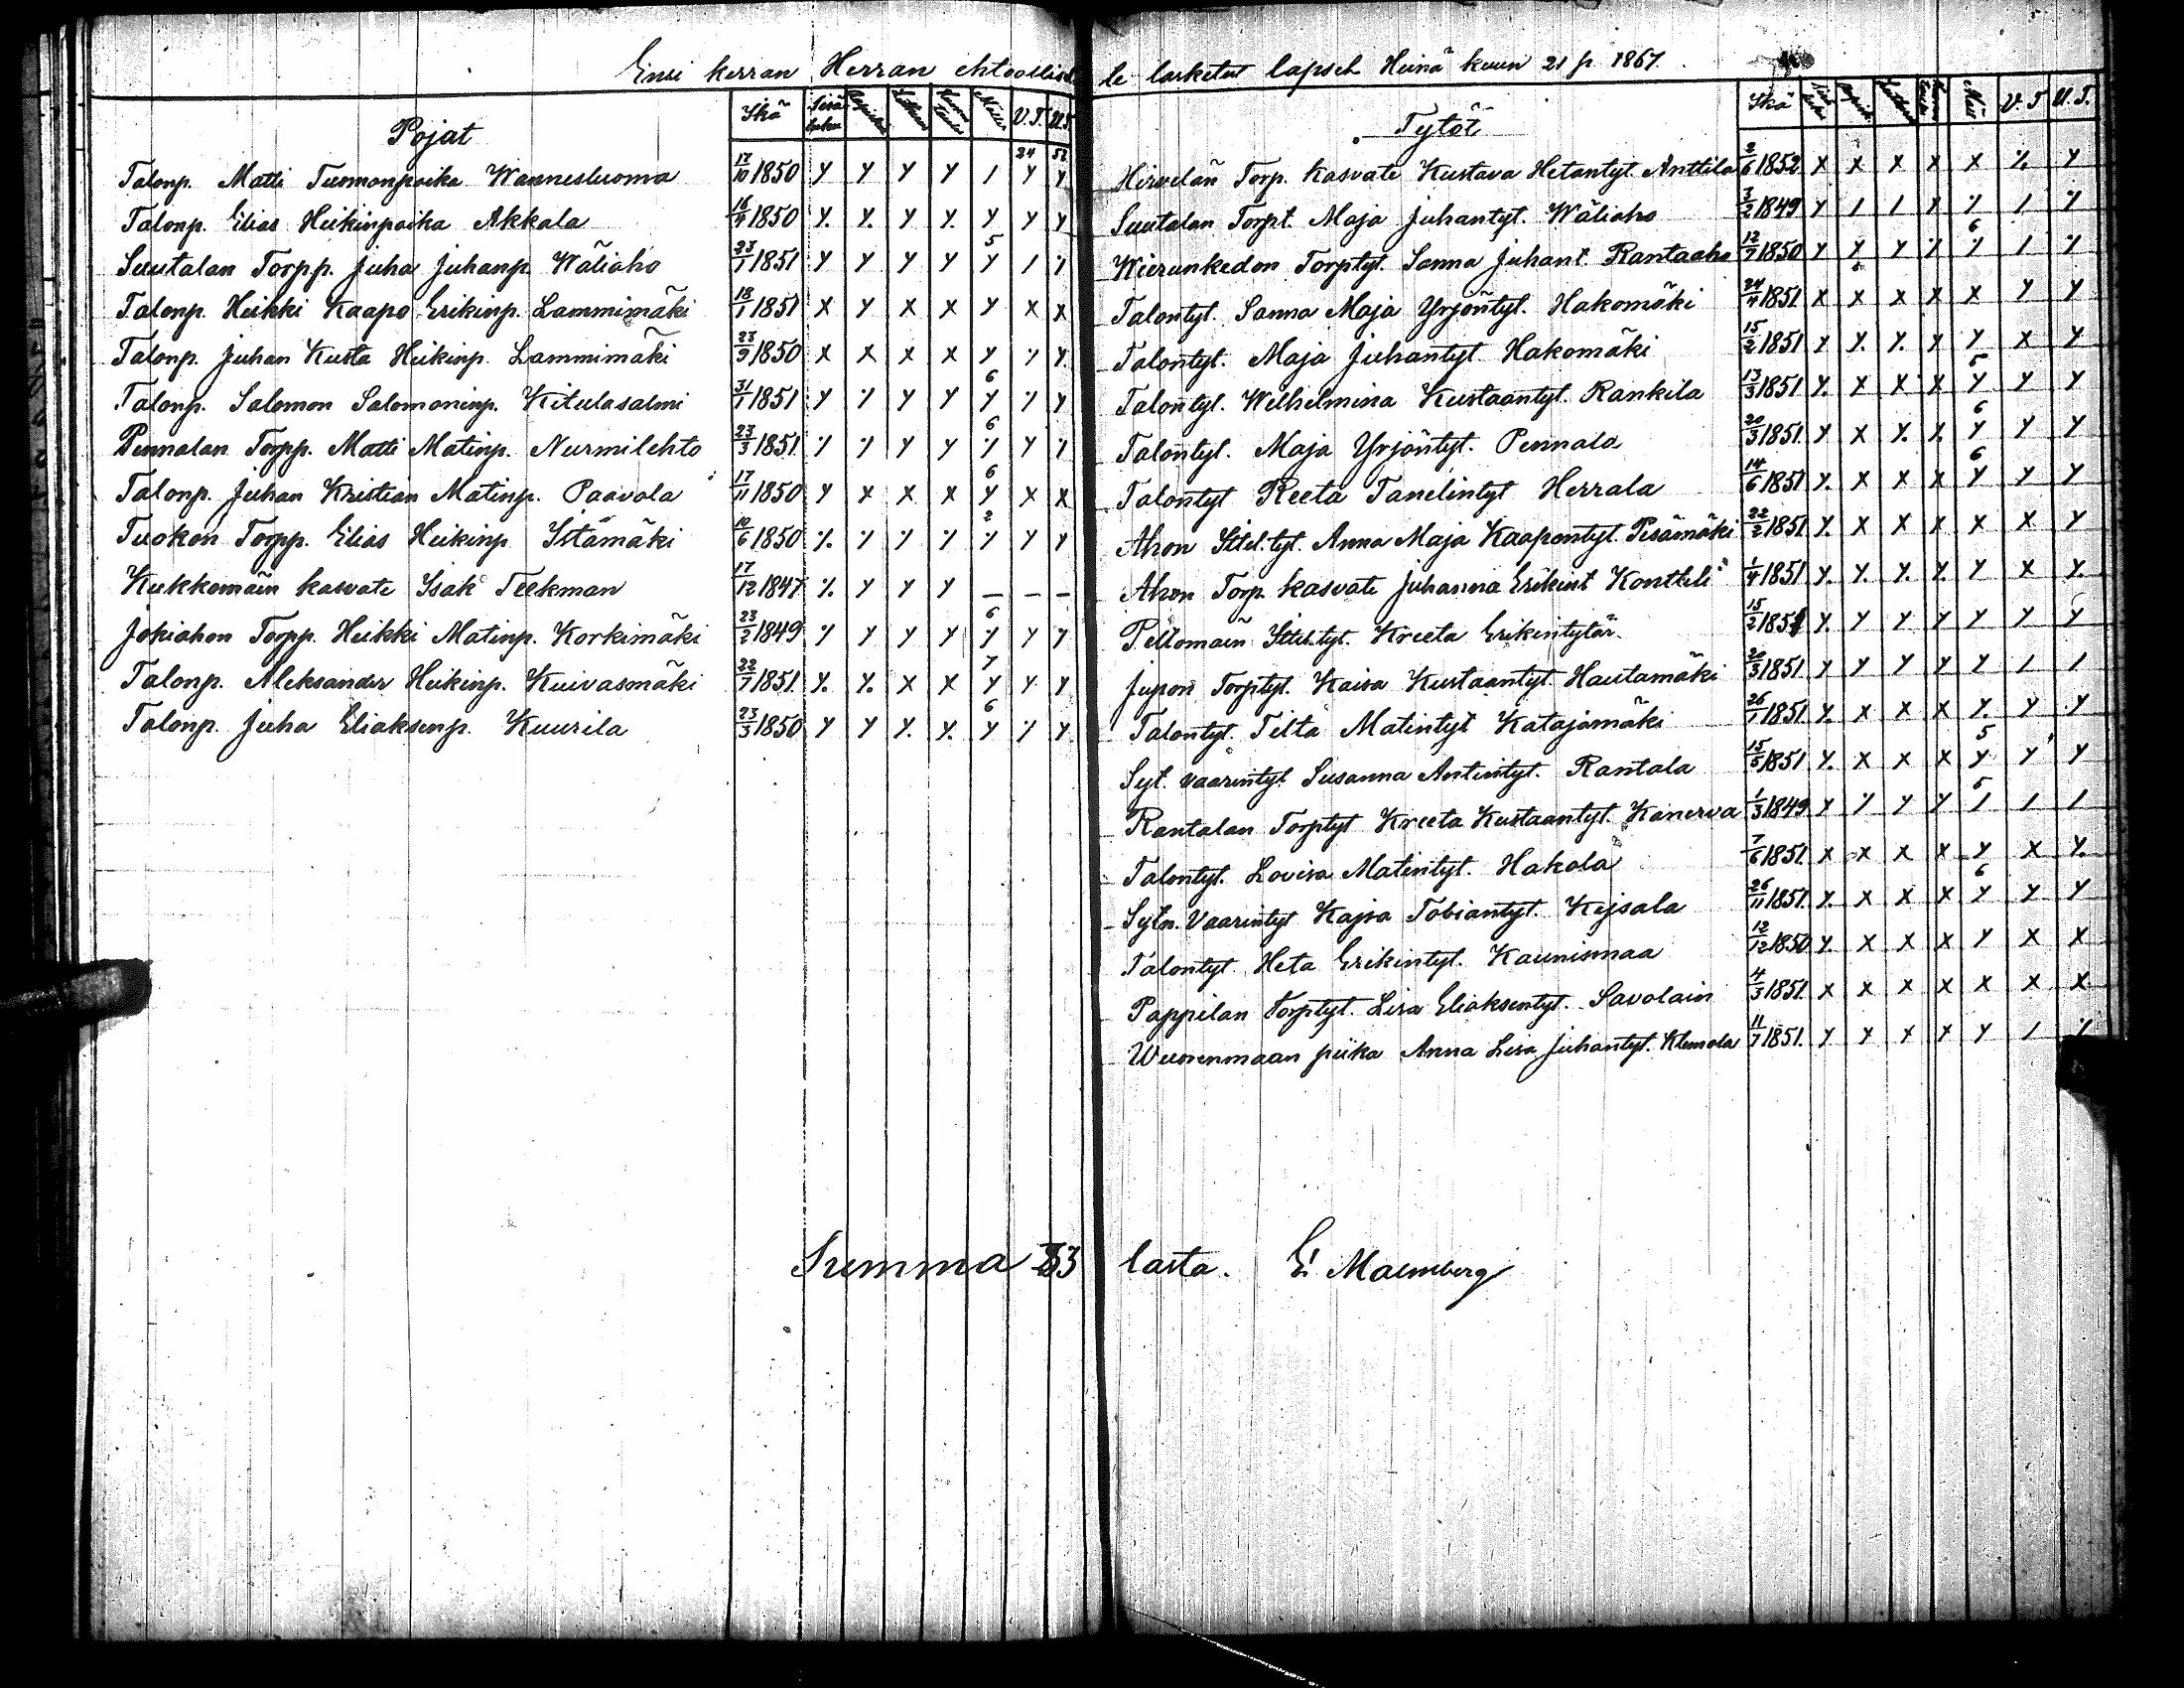 Ensi kerran Herran ehtoollise
le lasketut lapset Heinä kuun 21 p. 1867.
Pojat Ikä Sisä luku V.T. U.T.
24 52
Talonp. Matti Tuomonpoika Wannesluoma 17/10 1850 y y y y / y y
Talonp. Elias Heikinpoika Akkala 16/4 1850 y. y. y y. y y y
5
Suutalan Torpp. Juha Juhanp. Wäliaho 23/1 1851 y y y y y / ⁒
Talonp. Heikki Kaapo Erikinp. Lammimäki 18/1 1851 x y x x y x x
Talonp. Juhan Kusta Heikinp. Lammimäki 23/9 1850 x x x x y ⁒ y.
6
Talonp. Salomon Salomoninp. Kitulasalmi 31/1 1851 y ⁒ y y y ⁒ y
6
Pennalan Torpp. Matti Matinp. Nurmilehto 23/3 1851. ⁒ ⁒ y y ⁒ y ⁒
6
Talonp. Juhan Kristian Matinp. Paavola 17/11 1850 y x x x y x x
2
Tuokon Torpp. Elias Heikinp Istämäki 10/6 1850 ⁒ ⁒ ⁒ ⁒ ⁒ y y
Kukkomäin kasvate Isak Teekman 17/12 1847 ⁒ y y y — — —
6
Jokiahon Torpp. Heikki Matinp. Korkimäki 23/2 1849 ⁒ y y y ⁒ y y
7
Talonp. Aleksander Heikinp. Kuivasmäki 22/7 1851. y. y. x x y y y
6
Talonp. Juha Eliaksenp. Kuurila 23/3 1850 y y y. y. y ⁒ y.
Tytöt Ikä V.T U.T.
Hirvelän Torp. kasvate Kustava Hetantyt. Anttila 2/6 1852 x x x x x ⁒ y
Suutalan Torpt. Maja Juhantyt. Wäliaho 3/2 1849 y / / x ⁒ / ⁒
6
Wierunkedon Torptyt. Sanna Juhant. Rantaaho 12/9 1850 y y y ⁒ ⁒ / ⁒
Talontyt. Sanna Maja Yrjöntyt. Hakomäki 24/4 1851 x x x x x y y
Talontyt. Maja Juhantyt Hakomäki 15/2 1851 y y. y. y y x y
5
Talontyt. Wilhelmina Kustaantyt. Rankila 13/3 1851 y. x x x y y y
6
Talontyt. Maja Yrjöntyt. Pennala 20/3 1851. y x y. y. y y y
6
Talontyt Reeta Tanelintyt Herrala 14/6 1851 y. x x x y y y
Ahon Ittel.tyt. Anna Maja Kaapontyt. Pesämäki 22/2 1851 y. x x x x x y
Ahon Torp. kasvate Juhanna Erikint Kontteli 1/4 1851 y. y. y. y. y x y.
Peltomäin Ittel.tyt. Kreeta Erikintytär. 15/2 1851 y. y y y y y y
Jupon Torptyt. Kaisa Kustaantyt. Hautamäki 20/3 1851 y y y y y / /
Talontyt. Tilta Matintyt Katajamäki 26/1 1851 y. x x x y. y y
5
Syt. vaarintyt. Susanna Antintyt. Rantala 15/5 1851 y. x x x y y y
5
Rantalan Torptyt Kreeta Kustaantyt. Kanerva 1/3 1849 y ⁒ y y / / /
Talontyt. Lovisa Matintyt. Hakola 7/6 1851. x x x x y x y.
6
Sytn. Vaarintyt Kajsa Tobiantyt. Kejsala 26/11 1851. y. x x x y y y
Talontyt. Heta Erikintyt. Kaunismaa 12/12 1850 y. x x x y x x
Pappilan Torptyt. Lisa Eliaksentyt. Savolain 4/3 1851. x x x x x x x
Wuorenmaan piika Anna Lisa Juhantyt. Klemola 11/7 1851. y y y y y / ⁒
Summa 33 lasta. E. Malmberg